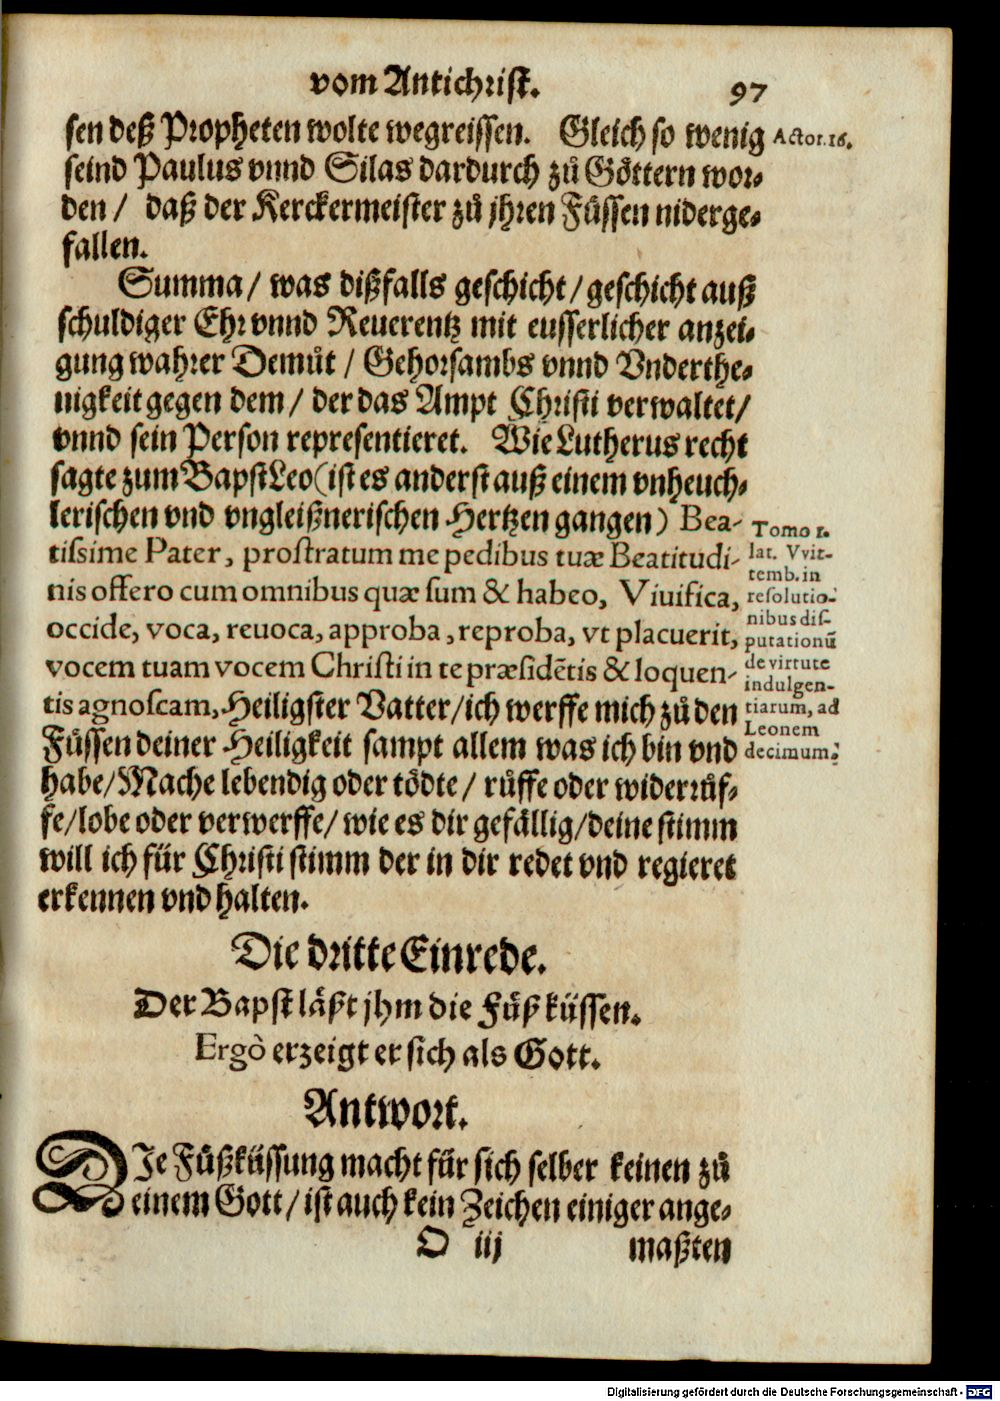 vom Antichrist. 97
sen deß Propheten wolte wegreissen. Gleich so wenig
Actor. 16.
seind Paulus vnnd Silas dardurch zů Göttern wor-
den / daß der Kerckermeister zů jhren Füssen niderge-
fallen.
Summa / was dißfalls geschicht / geschicht auß
schuldiger Ehr vnnd Reuerentz mit eusserlicher anzei-
gung wahrer Demůt / Gehorsambs vnnd Vnderthe-
nigkeit gegen dem / der das Ampt Christi verwaltet /
vnnd sein Person representieret. Wie Lutherus recht
sagte zum Bapst Leo (ist es anderst auß einem vnheuch-
lerischen vnd vngleißnerischen Hertzen gangen) Bea-
tißime Pater, proſtratum me pedibus tuæ Beatitudi-
nis offero cum omnibus quæ ſum & habeo, Viuifica,
occide, voca, reuoca, approba, reproba, vt placuerit,
vocem tuam vocem Chriſti in te præſidētis & loquen-
tis agnoſcam, Heiligster Vatter / ich werffe mich zů den
Füssen deiner Heiligkeit sampt allem was ich bin vnd
habe / Mache lebendig oder tödte / rüffe oder widerrüf-
fe / lobe oder verwerffe / wie es dir gefällig / deine stimm
will ich für Christi stimm der in dir redet vnd regieret
erkennen vnd halten.
Tomo 1.
lat. Vvit-
temb. in
reſolutio-
nibus diſ-
putationū
de virtute
indulgen-
tiarum, ad
Leonem
decimum.
Die dritte Einrede.
Der Bapst läßt jhm die Füß küssen.
Ergò erzeigt er sich als Gott.
Antwort.
DIe Füßküssung macht für sich selber keinen zů
einem Gott / ist auch kein Zeichen einiger ange-
O iij maßten
Digitalisierung gefördert durch die Deutsche Forschungsgemeinschaft - DFG